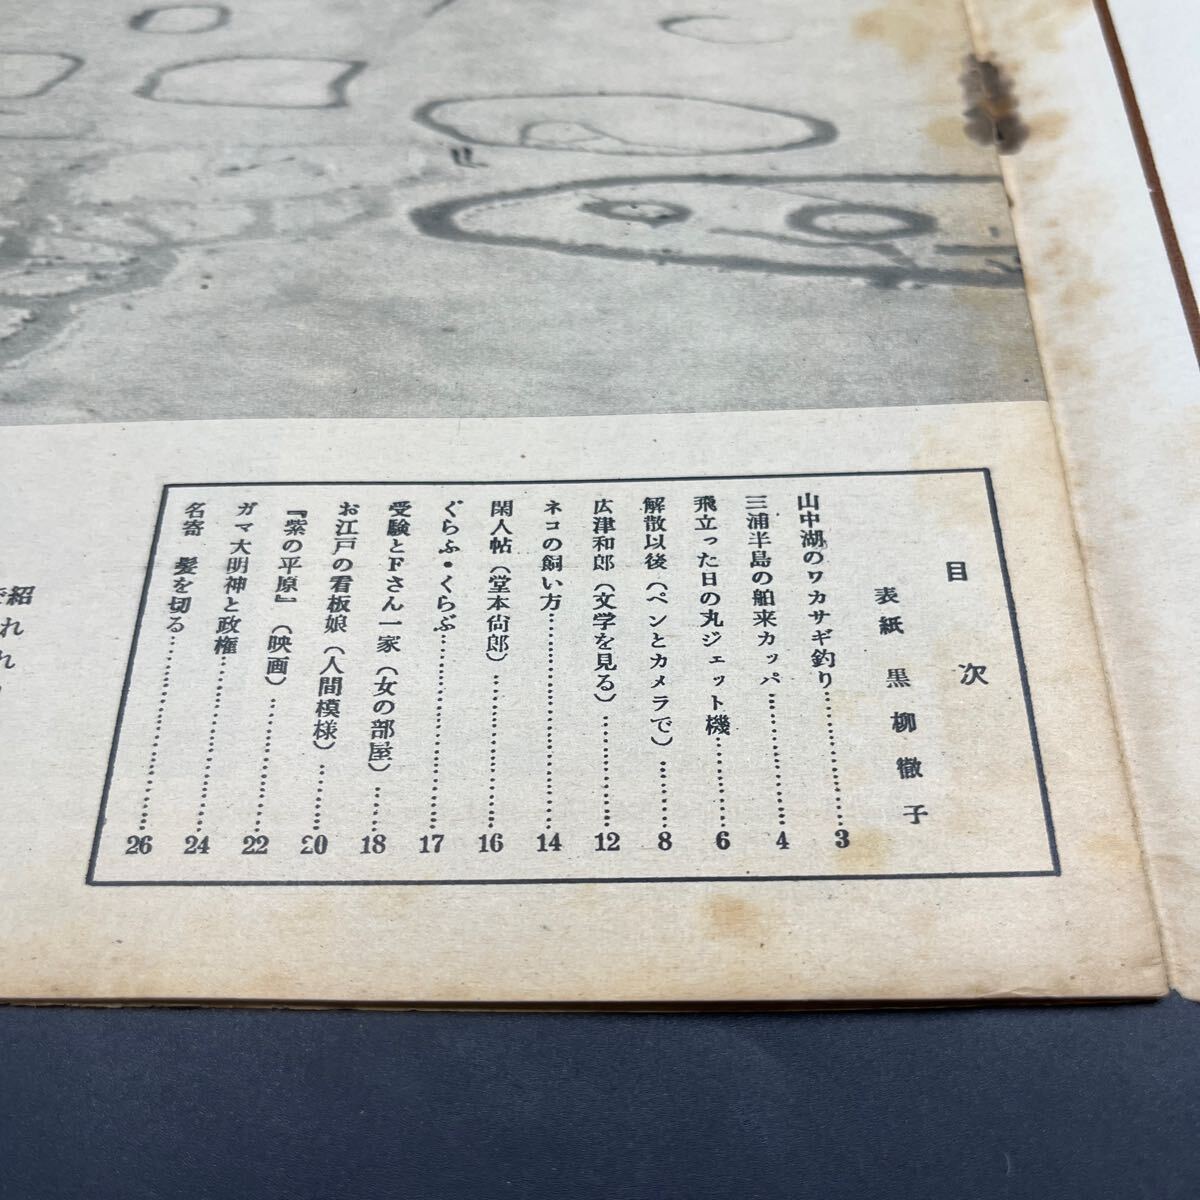 目次
表紙 黒柳徹子
山中湖のワカサギ釣り……………3
三浦半島の舶来カッパ……………4
飛立った日の丸ジェット機……………6
解散以後（ペンとカメラで）……………8
広津和郎（文学を見る）……………12
ネコの飼い方……………14
閑人帖（堂本尚郎）……………16
ぐらふ・くらぶ……………17
受験とFさん一家（女の部屋）……………18
お江戸の看板娘（人間模様）……………20
『紫の平原』（映画）……………22
ガマ大明神と政権……………24
名寄 髪を切る……………26
紹れれ